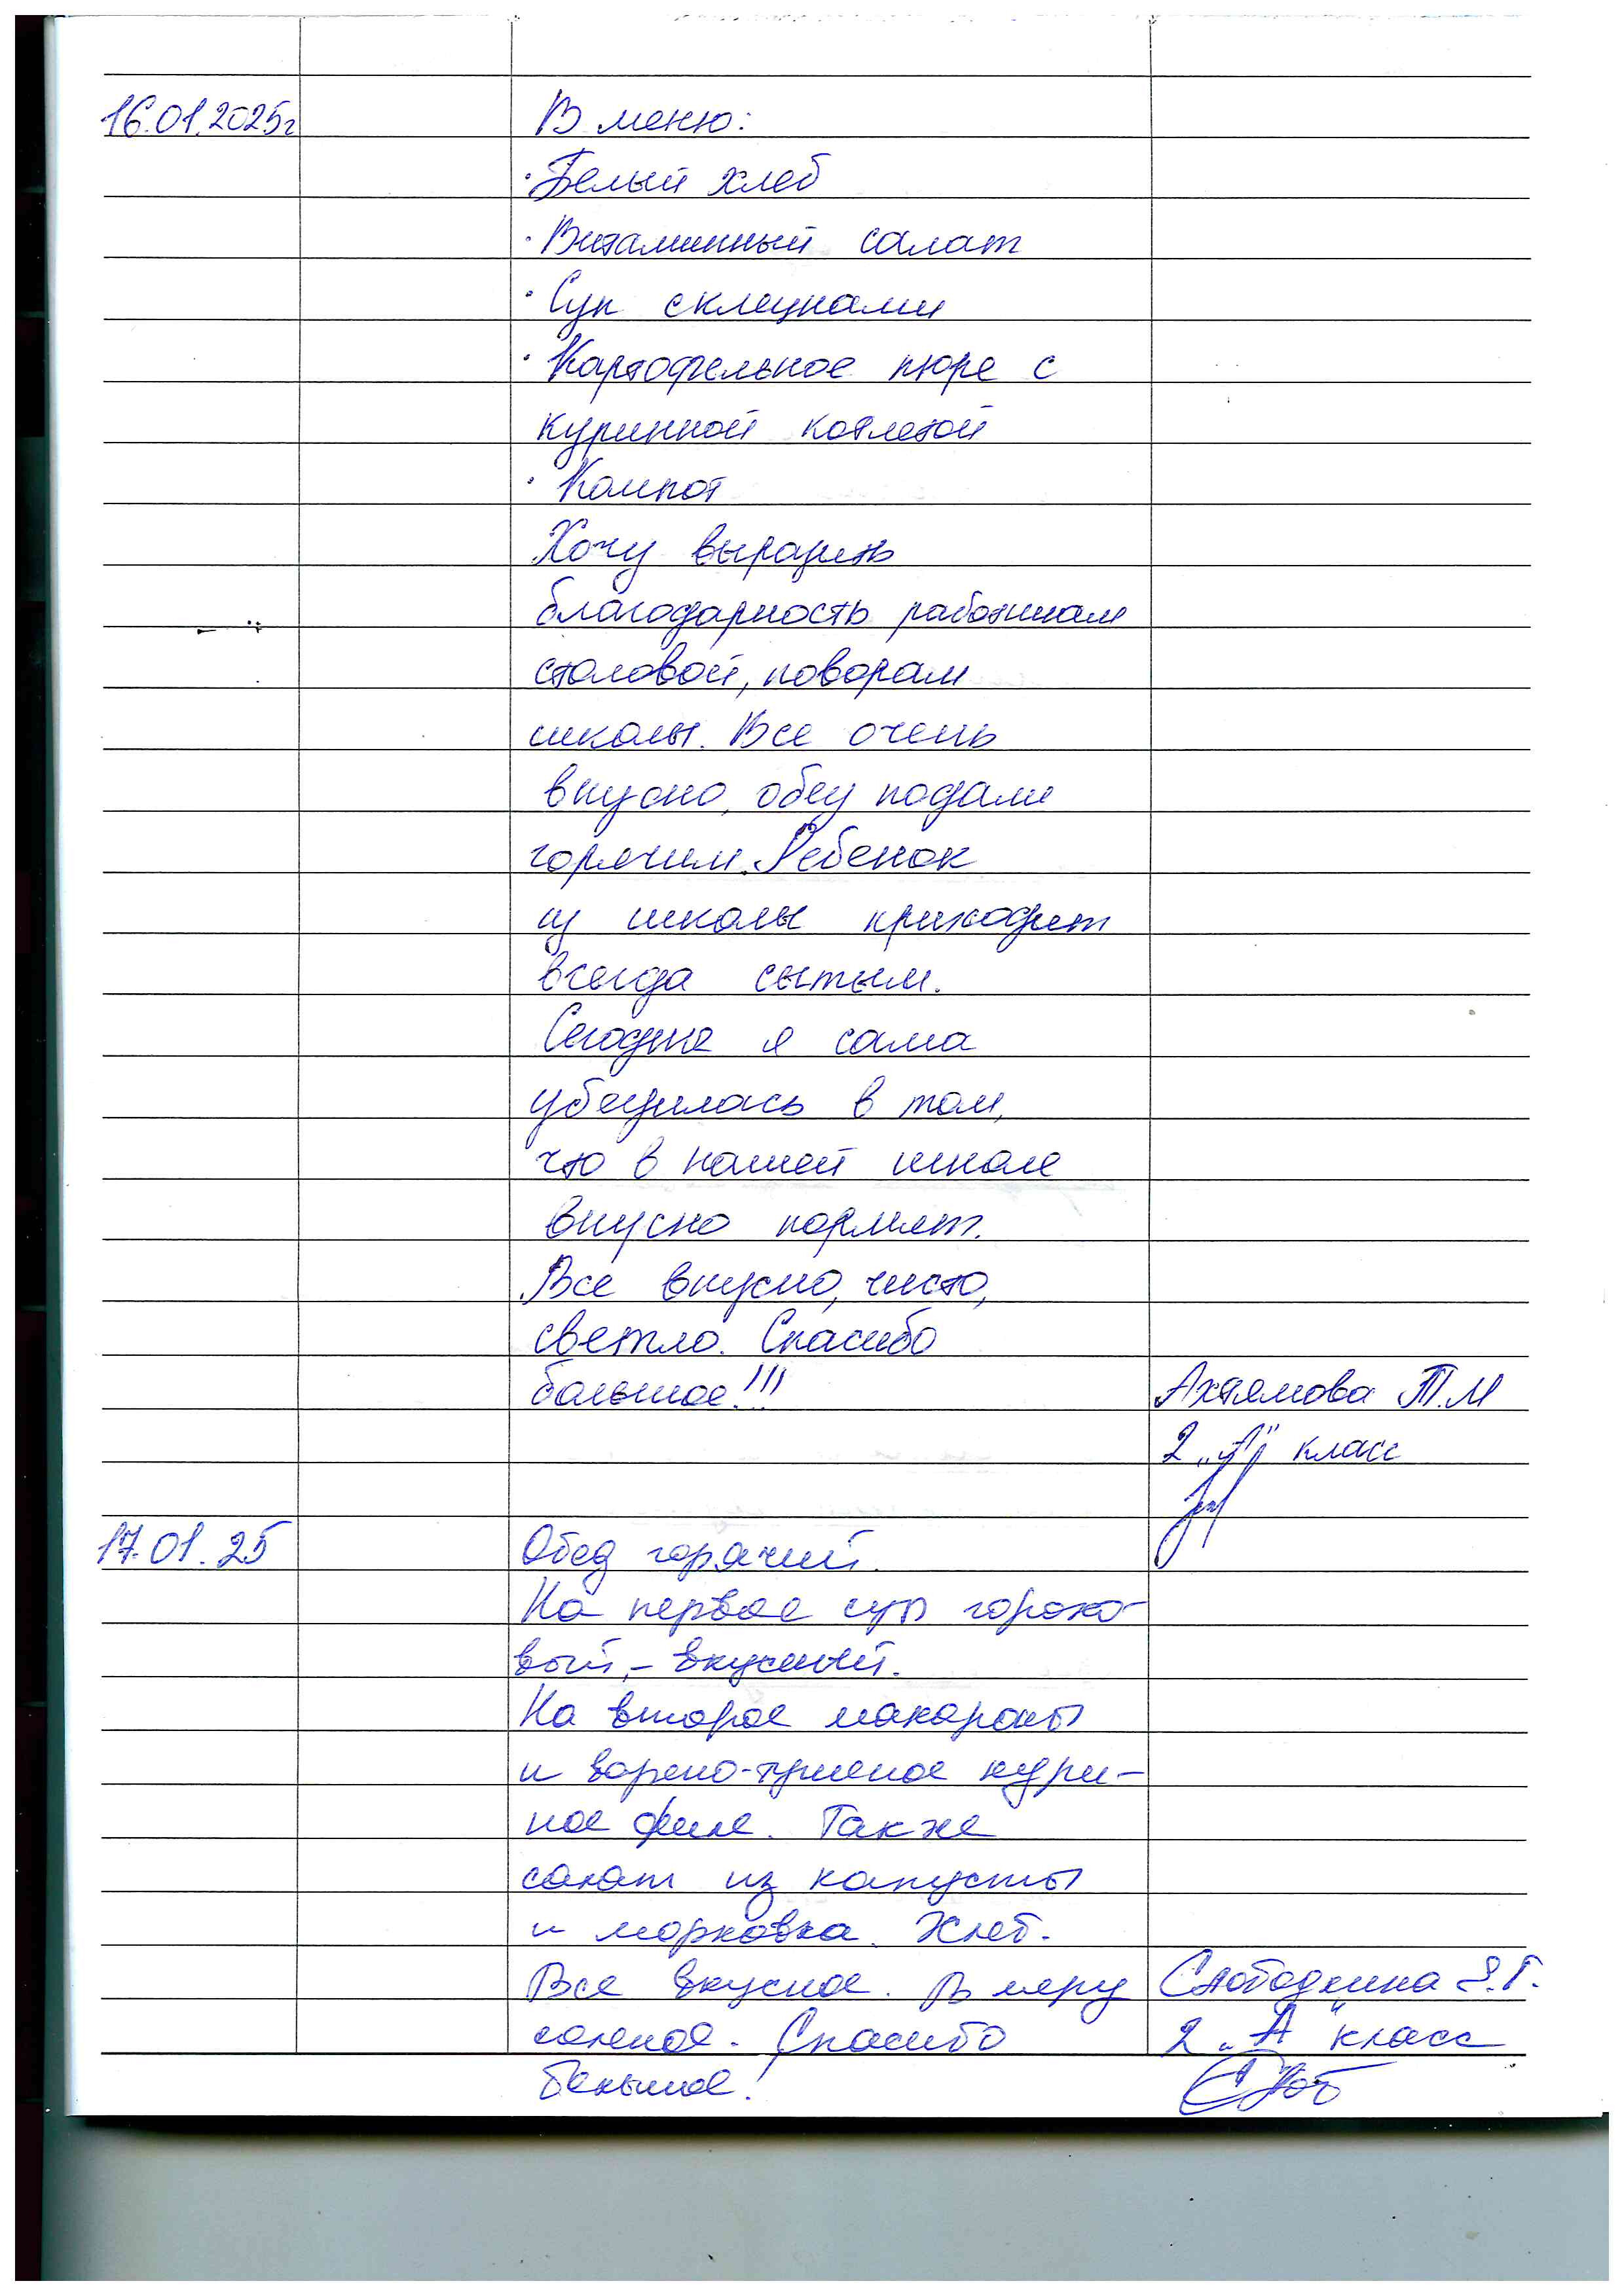 16.01.2025г В меню:
· Белый хлеб
· Витаминный салат
· Суп с клецками
· Картофельное пюре с
куринной котлетой
· Компот
Хочу выразить
благодарность работникам
столовой, поворам
школы. Все очень
вкусно, обед подали
горячим. Ребенок
из школы приходит
всегда сытым.
Сегодня я сама
убедилась в том,
что в нашей школе
вкусно кормят.
Все вкусно, чисто,
светло. Спасибо
большое!!! Ахтямова Т.М
2 „А" класс
17.01.25 Обед горячий.
На первое суп горохо-
вый, - вкусный.
На второе макароны
и варено-тушеное кури-
ное филе. Также
салат из капусты
и морковка. Хлеб.
Все вкусное. В меру Слободкина З.Г.
соленое. Спасибо 2 „А" класс
большое!